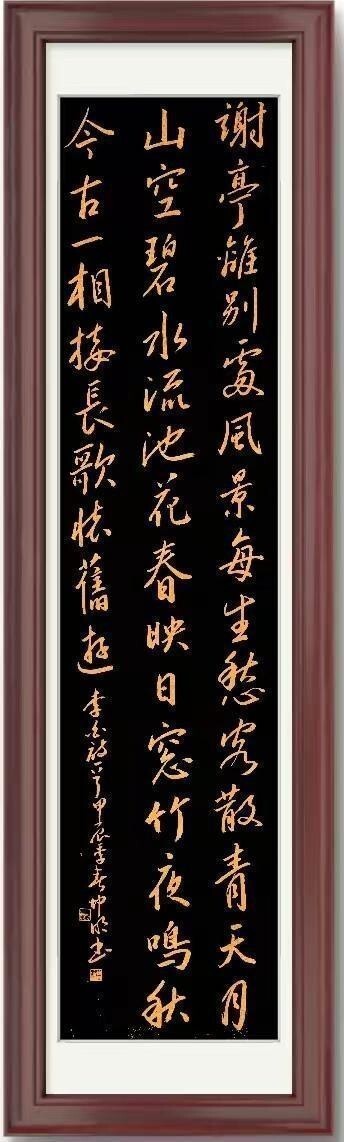 謝亭離別處風景每生愁客散青天月
山空碧水流池花春映日窓竹夜鳴秋
今古一相接長歌懷舊遊
李白詩一首甲辰季春坤明書